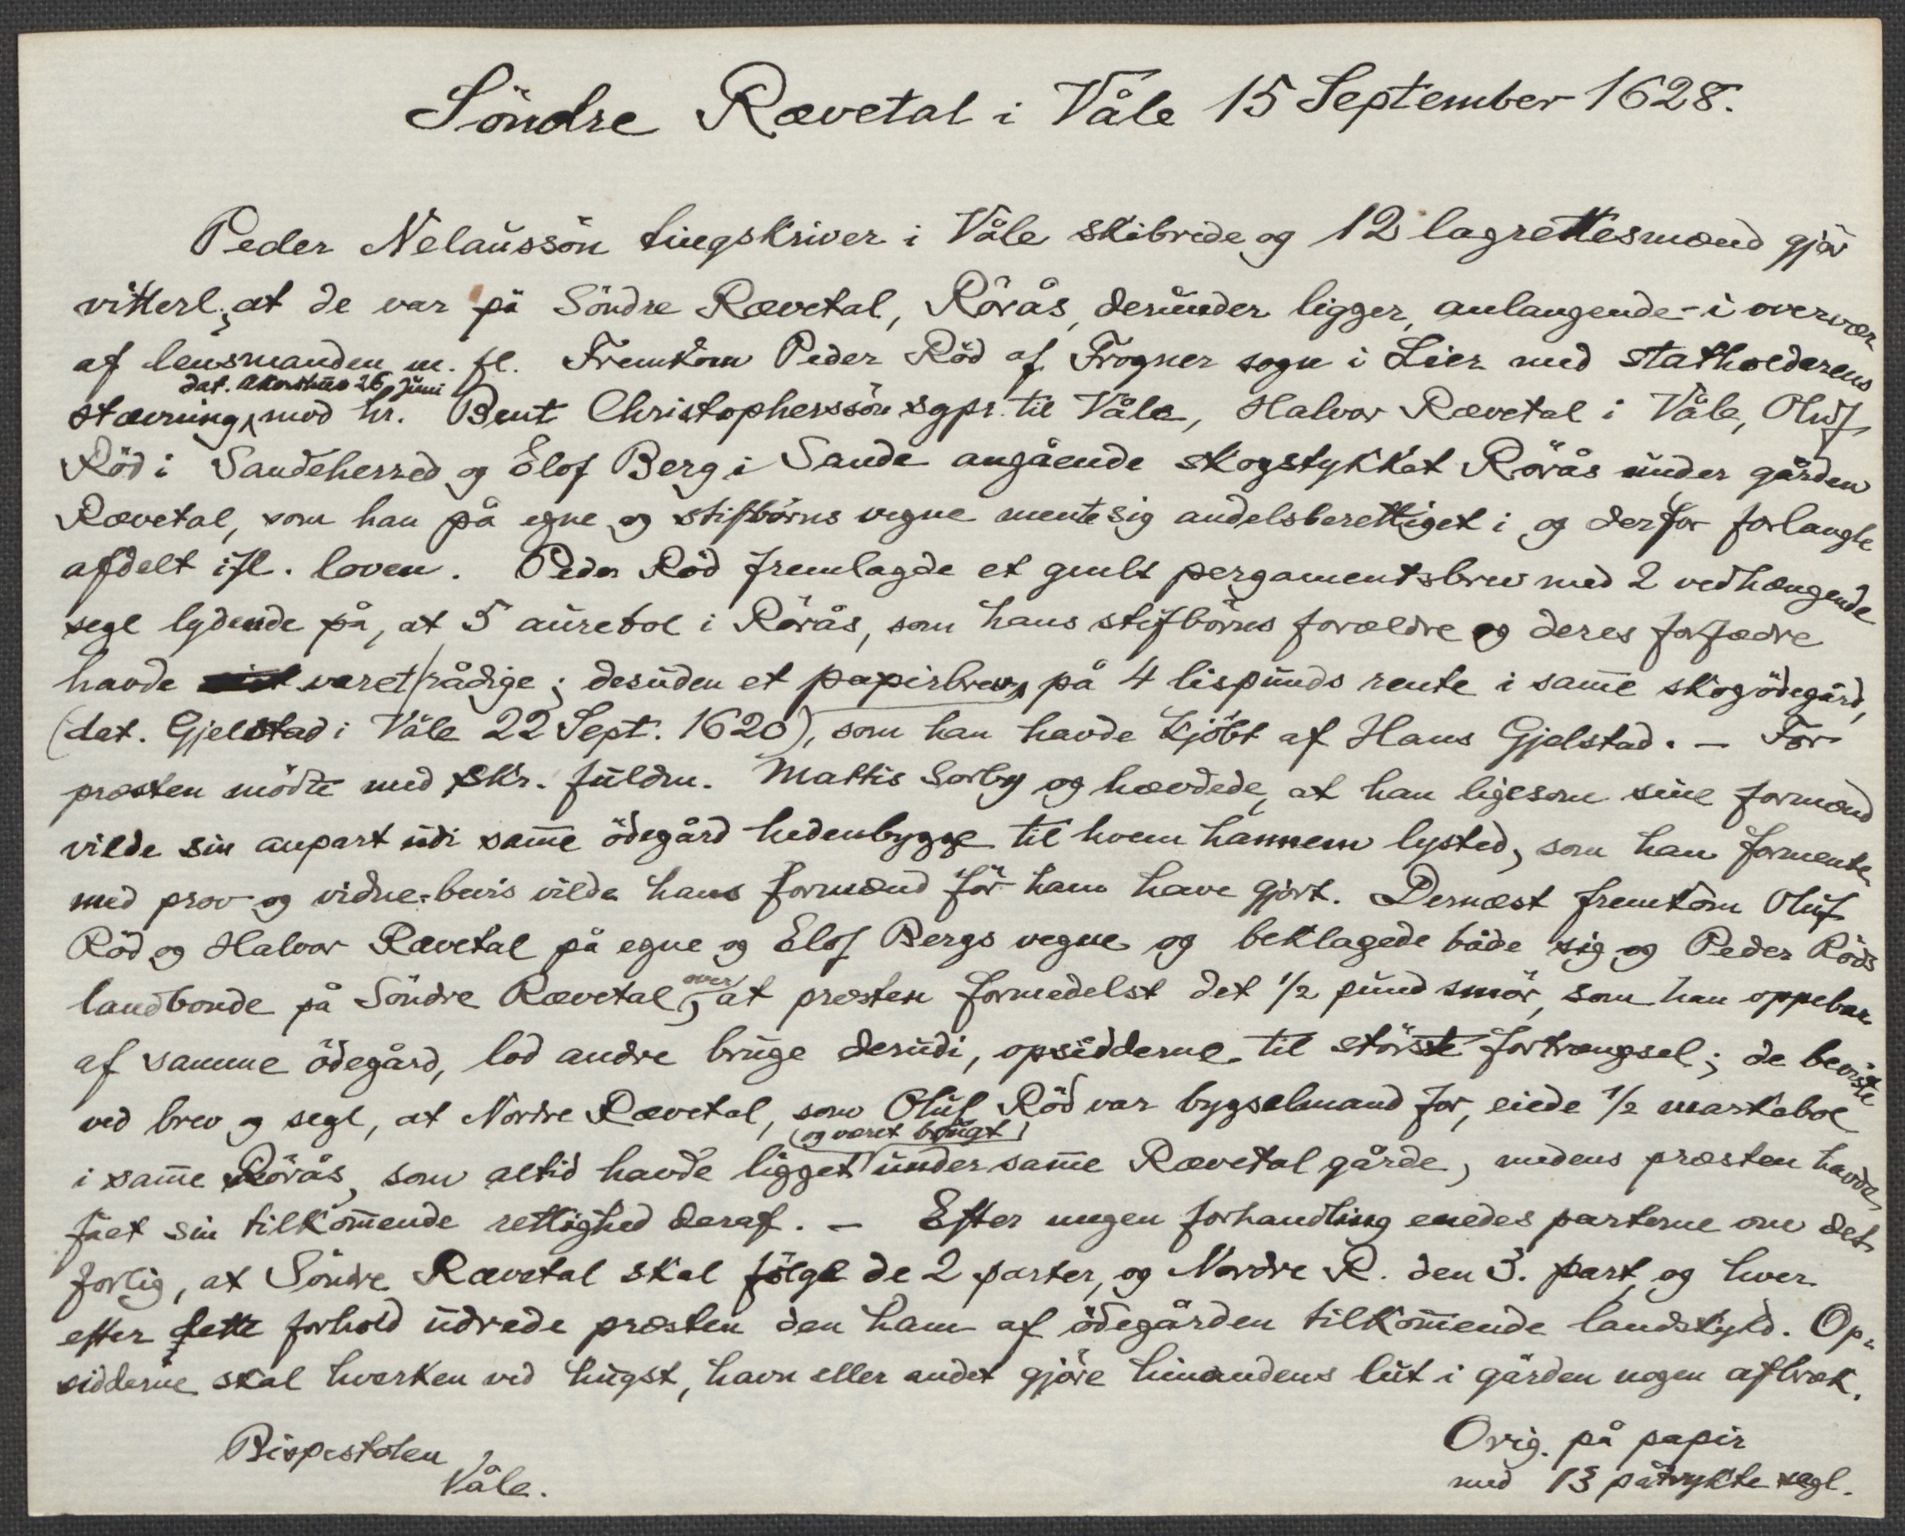 Söndre Rævetal i Våle 15 September 1628.
Peder Nelaussön tingskriver i Våle skibrede og 12 lagrettesmænd gjör
vitterl., at de var på Söndre Rævetal, Rörås, derunder ligger, anlangende - i overvær
af lensmanden m. fl. Fremkom Peder Röd af Frogner sogn i Lier med statholderens
dat. Akershus 26 Juni
stævning, mod hr. Bent Christopherssön sgpr. til Våle, Halvor Rævetal i Våle, Oluf
Röd i Sandeherred og Elof Berg i Sande angående skogstykket Rörås under gården
Rævetal, som han på egne og stifbörns vegne mente sig andelsberettiget i og derfor forlangte
afdelt ifl. loven. Peder Röd fremlagde et gmlt pergamentsbrev med 2 vedhængende
segl lydende på, at 5 aurebol i Rörås, som hans stifbörns forældre og deres forfædre
havde været rådige; desuden et papirbrev, på 4 lispunds rente i samme skogödegård,
(dat. Gjelstad i Våle 22 Sept. 1620), som han havde kjöbt af Hans Gjelstad. — For
præsten mödte med skr. fuldm. Mattis Sørby og hævdede, at han ligesom sine formænd
vilde sin anpart udi samme ödegård hedenbygge til hvem hannem lysted, som han formente
med prov og vidne-bevis vilde hans formænd för ham have gjort. Dernæst fremkom Oluf
Röd og Halvor Rævetal på egne og Elof Bergs vegne og beklagede både sig og Peder Röds
landbonde på Söndre Rævetal over, at præsten formedelst det 1/2 pund smör, som han oppebar
af samme ödegård, lod andre bruge derudi, opsidderne til störste fortrængsel; de beviste
ved brev og segl, at Nordre Rævetal, som Oluf Röd var bygselmand for, eiede 1/2 markebol
(og været brugt)
i samme Rörås, som altid havde ligget under samme Rævetal gårde, medens præsten havde
fået sin tilkommende rettighed deraf. — Efter nogen forhandling enedes parterne om det
forlig, at Söndre Rævetal skal fölge de 2 parter, og Nordre R. den 3. part, og hver
efter dette forhold udrede præsten den ham af ödegården tilkommende landskyld. Op-
sidderne skal hverken ved hugst, havn eller andet gjöre hinandens lut i gården nogen afbræk.
Bispestolen
Våle.
Orig. på papir
med 13 påtrykte segl.